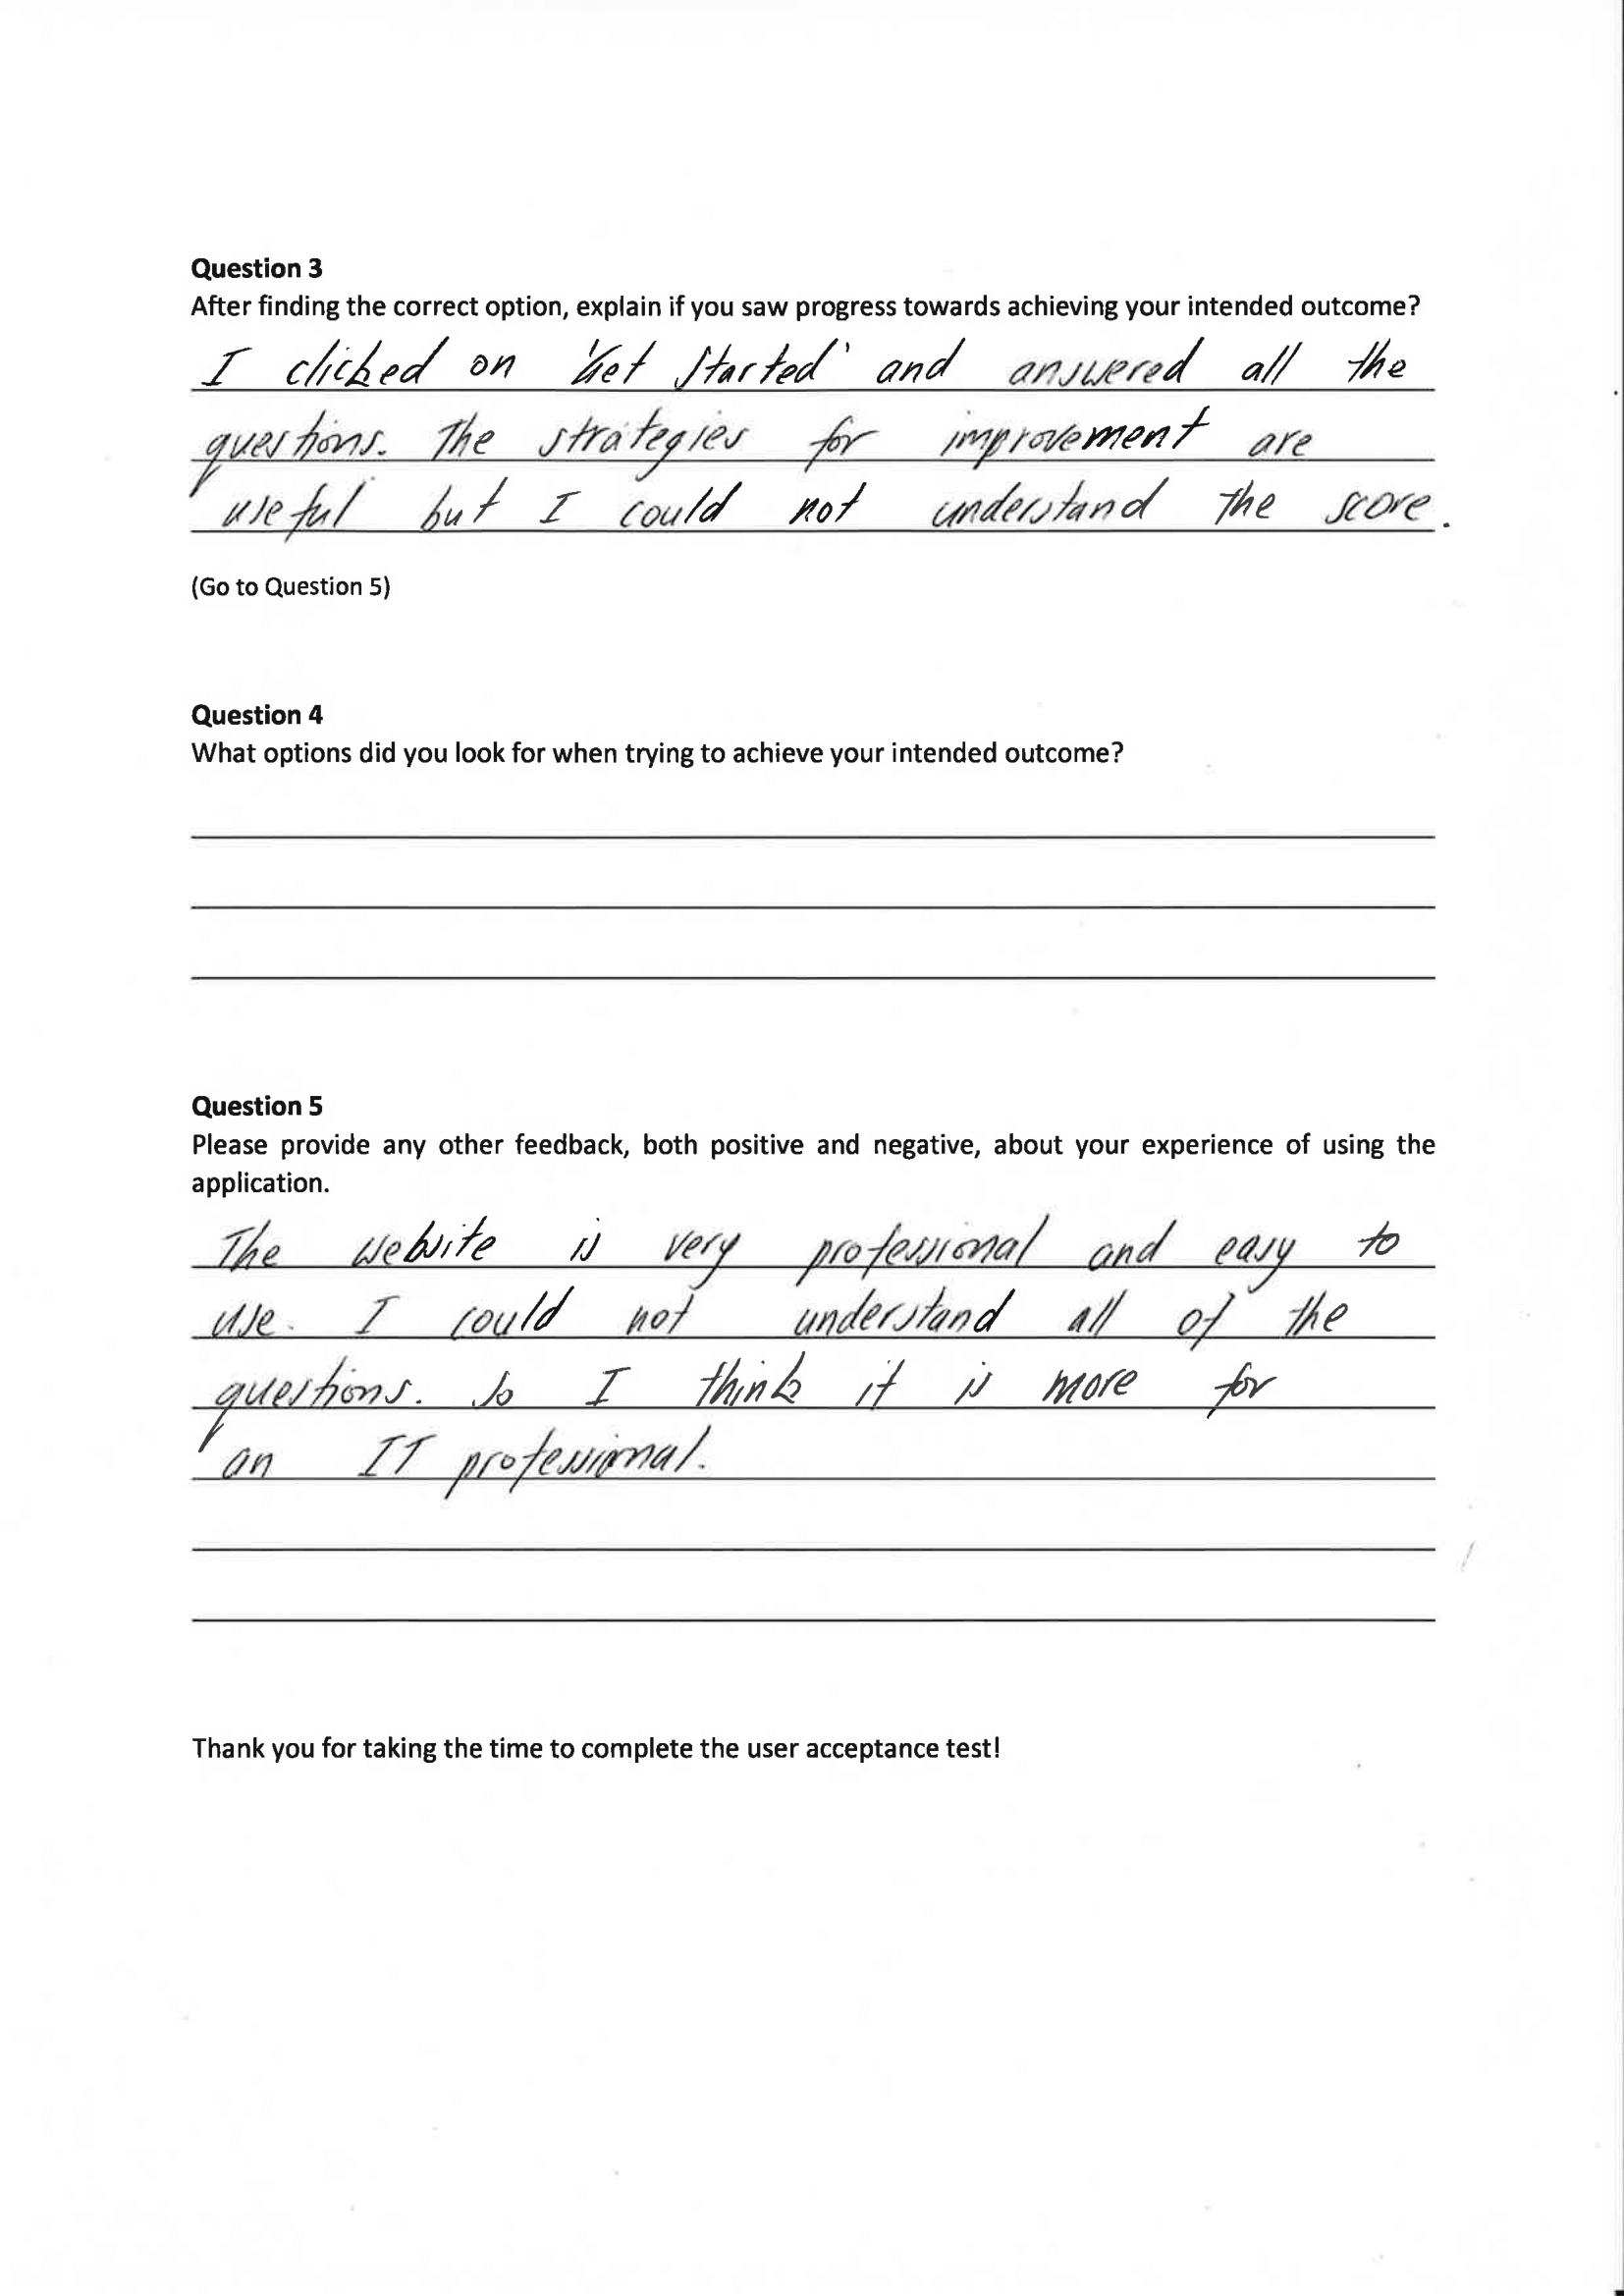 Question 3
After finding the correct option, explain if you saw progress towards achieving your intended outcome?
I clicked on 'Get Started' and answered all the
questions. The strategies for improvement are
useful but I could not understand the score.
(Go to Question 5)
Question 4
What options did you look for when trying to achieve your intended outcome?
Question 5
Please provide any other feedback, both positive and negative, about your experience of using the
application.
The website is very professional and easy to
use. I could not understand all of the
questions. So I think it is more for
an IT professional.
Thank you for taking the time to complete the user acceptance test!